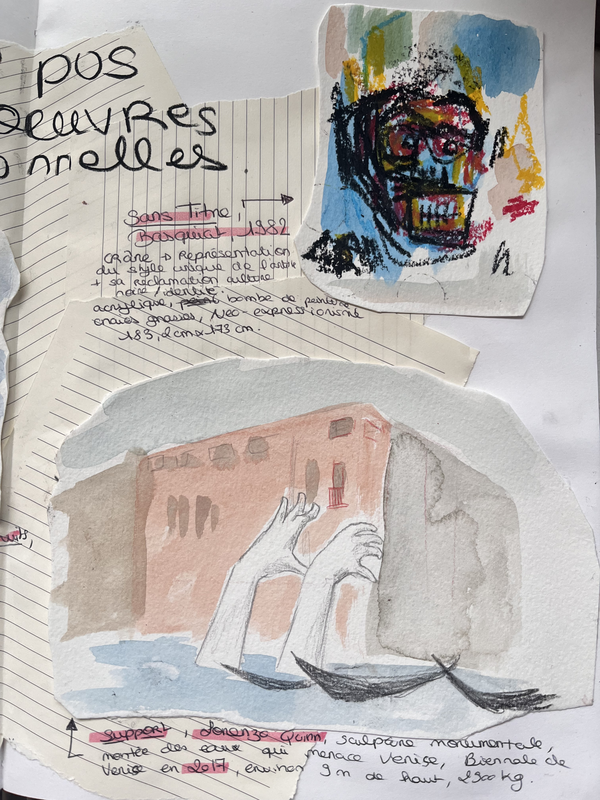 pos
oeuvres
nnelles
Sans Titre,
Basquiat, 1982
crâne → Représentation
du style unique de l'artiste
+ sa réclamation culture
noire / identité.
acrylique, bombe de peinture
craies grasses, Néo-expressionisme
183,2cm x 173 cm.
uits,
Support, Lorenzo Quinn, sculpture monumentale,
montée des eaux qui menace Venise, Biennale de
Venise en 2017, environ 9m de haut, 2900 kg.